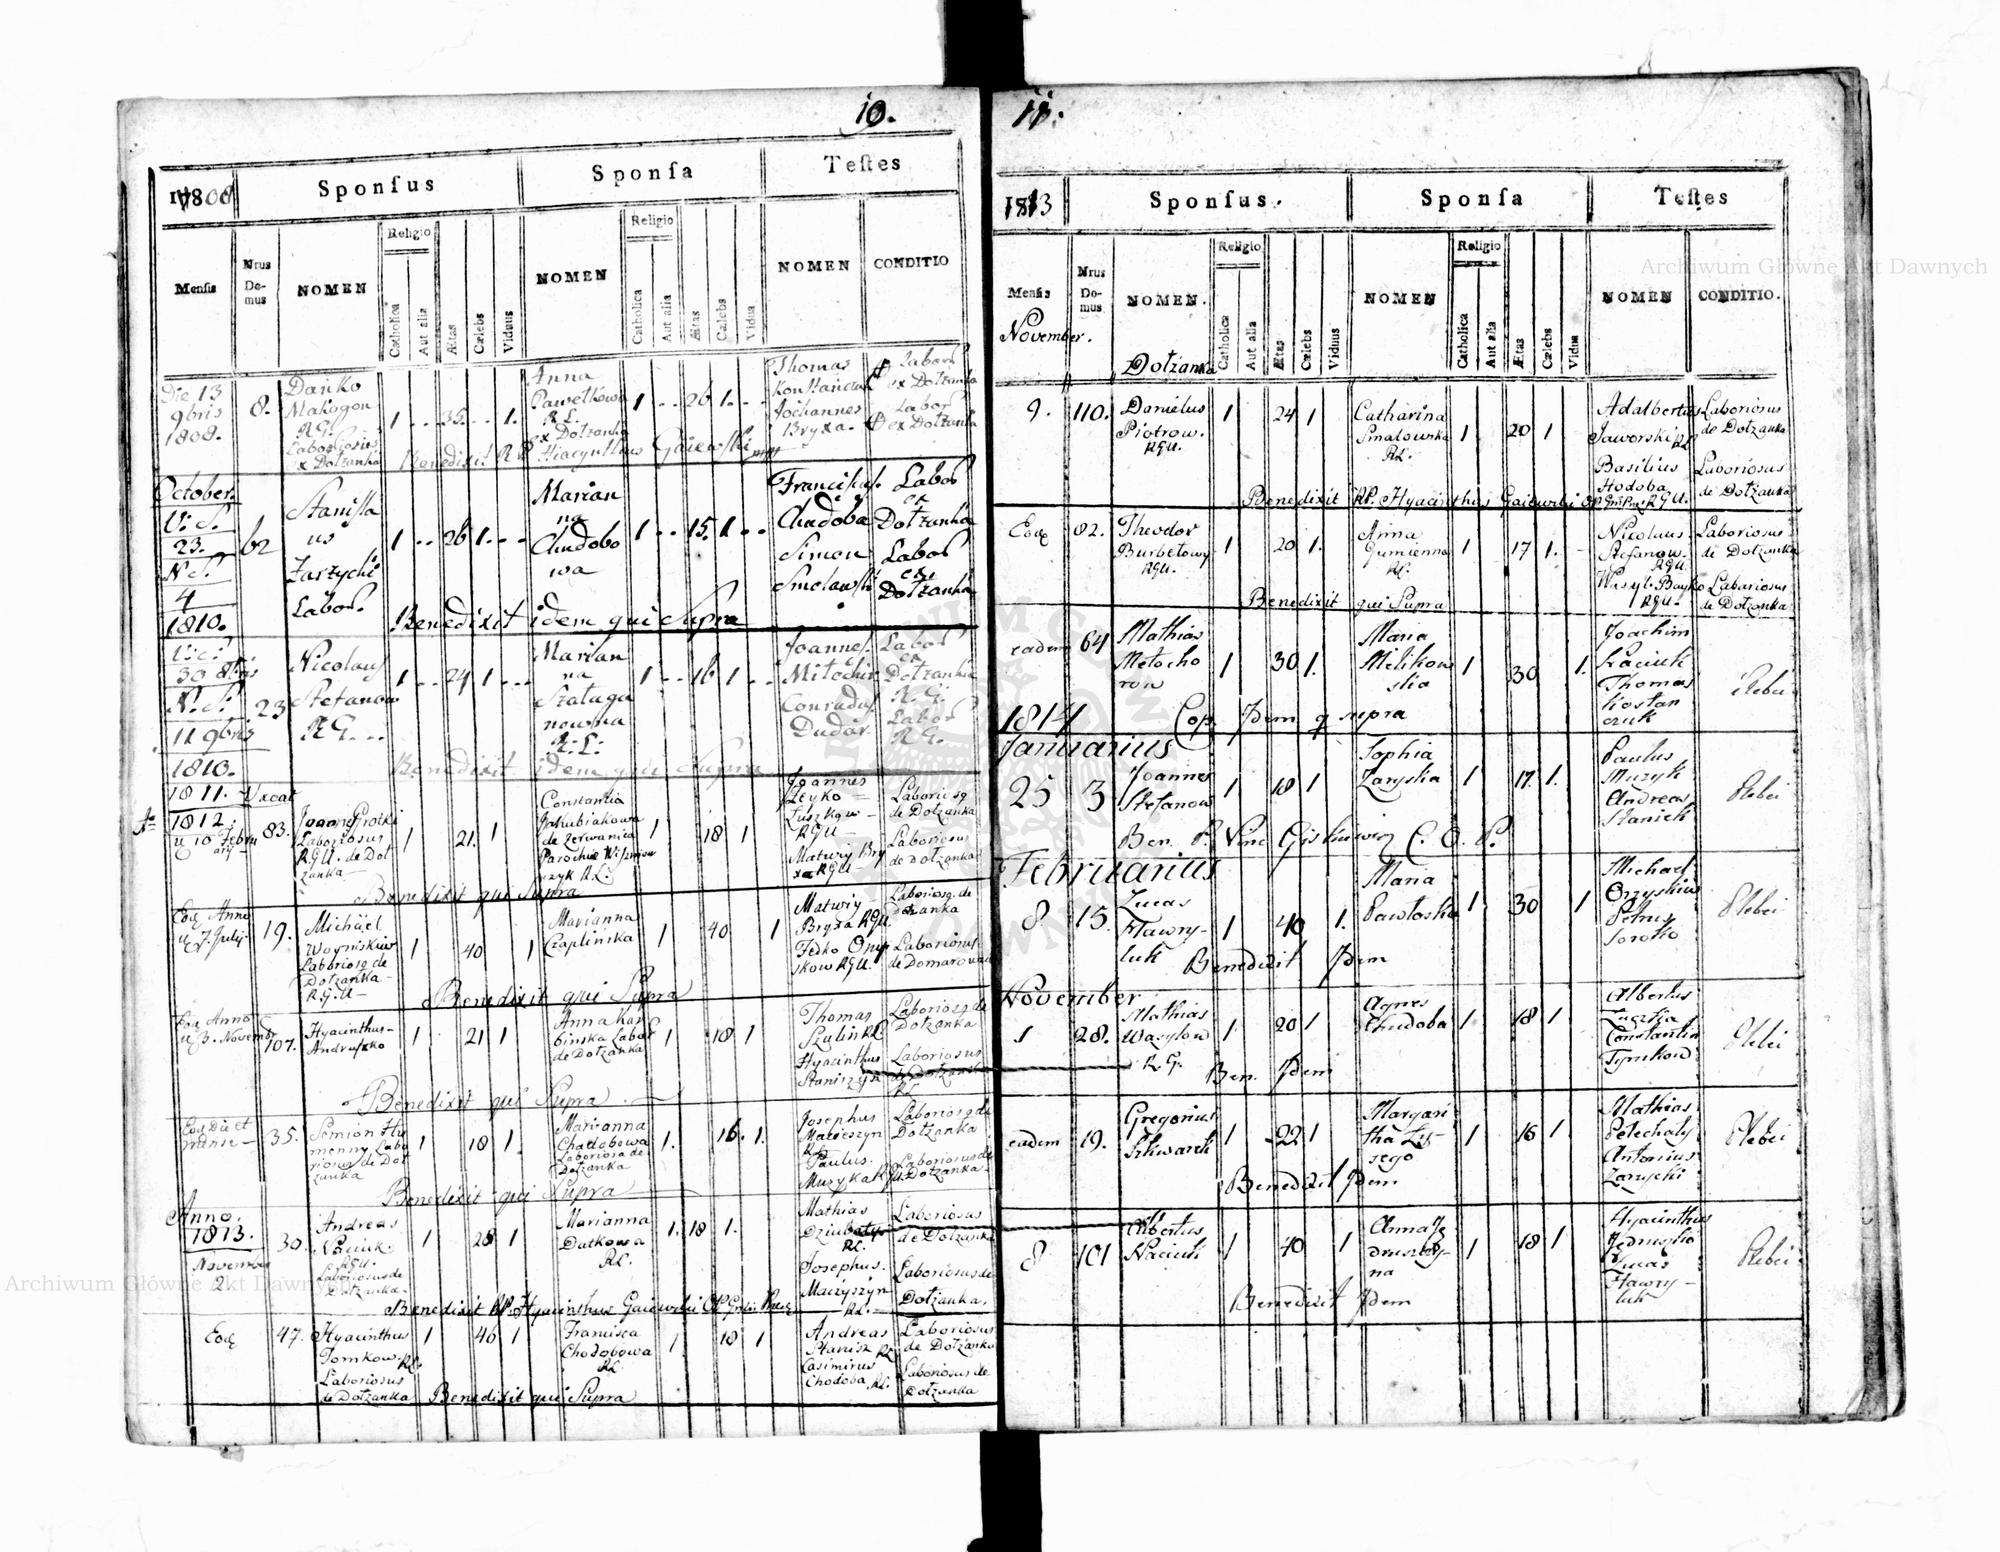 10.
1808
Sponſus
Sponſa
Teſtes
Menſis
Nrus Do-mus
NOMEN
Religio
Catholica
Aut alia
Ætas
Cælebs
Viduus
NOMEN
Religio
Catholica
Aut alia
Ætas
Cælebs
Vidua
NOMEN
CONDITIO
Die 13
9bris
1808.
8.
Danko
Makogon
R.G.
Laboriosus
ex Dołzanka
1 .. 35. .. 1.
Anna
Pawełkowa
R.L.
ex Dołzanka
1 .. 26 1. ..
Thomas
Konstanciuk
Jochannes
Bryxa.
Labor
ex Dołzanka
Labor
ex Dołzanka
Benedixit R.P. Hiacynthus Gaiewski
October.
V. S.
23.
N. S.
4
1810.
62
Stanisla
us
Zarzycki
Labor.
1 .. 26 1. ..
Marian
na
Chudobo
wa
1 .. 15. 1. ..
Francisus
Chadoba
Simon
Smolawski
Labor
ex
Dołzanka
Labor
ex
Dołzanka
Benedixit idem qui Supra
V. S.
30 8bris
N. S.
11 9bris
1810.
23
Nicolaus
Stefanow
R.G. ..
1 .. 24 1 ...
Marian
na
Szaługa
nowna
R.L.
1 .. 16 1 ..
Joannes
Mitochir
Conradus
Dudar
Labor
ex
Dołzanka
R.G.
Labor
R.G.
Benedixit idem qui Supra
1811. Vacat
1812.
83.
Laboriosus
R.G.U. de Doł
zanka
1 21. 1
Constantia
Jakubiakowa
de Zerwanica
Parochiæ Wisniow
czyk R.L.
1 18 1
Joannes
Leyko
Luszkow
R.G.U.
Matwiy Bry
xa R.G.U.
Laboriosq
de Dołzanka
Laboriosus
de Dołzanka
Benedixit qui Supra
Eoq Anno
19.
Michäel
Woyniskiw
Laboriosq de
Dołzanka
R.G.U.
1 40 1
Marianna
Czaplinska
1 40 1
Matwiy
Bryxa R.G.U.
Fedko Onyp
skow R.G.U.
Laboriosq. de
Dołzanka
Laboriosus
de Domarowna
Benedixit qui Supra
Eoq Anno
107.
Hyacinthus
Andruszko
1 21 1
Anna Kar
binska Labor
de Dołzanka
1 18 1
Thomas
Szulin R.L.
Hyacinthus
Staniszyn
Laboriosq de
Dołzanka
Laboriosus
de Dołzanka
R.L.
Benedixit qui Supra
Eoq Die et
mense
35.
Semion Hu
menny Labo
riosus de Doł
zanka
1 18 1.
Marianna
Chadobowa
Laboriosa de
Dołzanka
1. 16. 1.
Josephus
Macieszyn
R.L.
Paulus.
Muzyka R.G.U.
Laboriosq de
Dołzanka
Laboriosus de
Dołzanka
Benedixit qui Supra
Anno.
1813.
November
2
30.
Andreas
Naciuk.
R.G.U.
Laboriosus de
Dołzanka.
1 28 1
Marianna
Dutkowa
R.L.
1. 18 1.
Mathias
R.L.
Josephus.
Maczyszyn
R.L.
Laboriosus
de Dołzanka
Laboriosus de
Dołzanka.
Benedixit R.P. Hyacinthus Gaiewski OP
Eoq
47.
Hyacinthus
Tomkow. R.L.
Laboriosus
de Dołzanka
1 46 1
Francisca
Chodobowa
R.L.
1 18 1
Andreas
Stanisz R.L.
Casimirus
Chodoba R.L.
Laboriosus
de Dołzanka
Laboriosus de
Dołzanka
Benedixit qui Supra
11.
1813
Sponſus.
Sponſa
Teſtes
Menſis
Nrus Do-mus
NOMEN.
Religio
Catholica
Aut alia
Ætas
Cælebs
Viduus
NOMEN
Religio
Catholica
Aut alia
Ætas
Cælebs
Vidua
NOMEN
CONDITIO.
November.
Dołzanka
9.
110.
Danielus
Piotrow.
R.G.U.
1 24 1
Catharina
Smalowska
R.L.
1 20 1
Adalbertus
Jaworski R.L.
Basilius
Hodoba
R.G.U.
Laboriosus
de Dołzanka
Laboriosus
de Dołzanka
Benedixit R.P. Hyacinthus Gaiewski OP
Eoq
82.
Theodor
Burbełowy
R.G.U.
1 20 1.
Anna
Gumienna
R.L.
1 17 1.
Nicolaus
Stefanow.
R.G.U.
Wasyl Bayko
R.G.U.
Laboriosus
de Dołzanka
Laboriosus
de Dołzanka
Benedixit qui Supra
eadem
64
Mathias
Metocho
row
1 30 1.
Maria
Milikow
ska
1 30 1.
Joachim
Kaciuk
Thomas
Kostan
czuk
Plebei
Cop. Idem q supra
1814
Januarius
25
3
Joannes
Stefanow
1 18 1
Sophia
Zaryska
1 17. 1.
Paulus
Muzyk
Andreas
Staniek
Plebei
Februarius
8
15.
Lucas
Hawry-
luk
1 40 1.
Maria
Pawłoska
1 30 1
Michael
Petrus
Sorotko
Plebei
Benedixit Idem
November
1
28.
Mathias
Wasylow
R.G.
1 20 1
Agnes
Chudoba
1 18 1
Albertus
Constantin
Tymkow
Plebei
Ben. Idem
eadem
19.
Gregorius
Skwarek
1 22 1
Margari
tha Ly-
sego
1 16 1
Mathias
Pelechaty
Antonius
Zarycki
Plebei
Benedixit Idem
8
101
Albertus
Naciuk
1 40 1
Anna Ję
druszczy-
na
1 18 1
Hyacinthus
Jędruszko
Lucas
Hawry-
luk
Plebei
Benedixit Idem
Archiwum Główne Akt Dawnych
Archiwum Główne Akt Dawnych